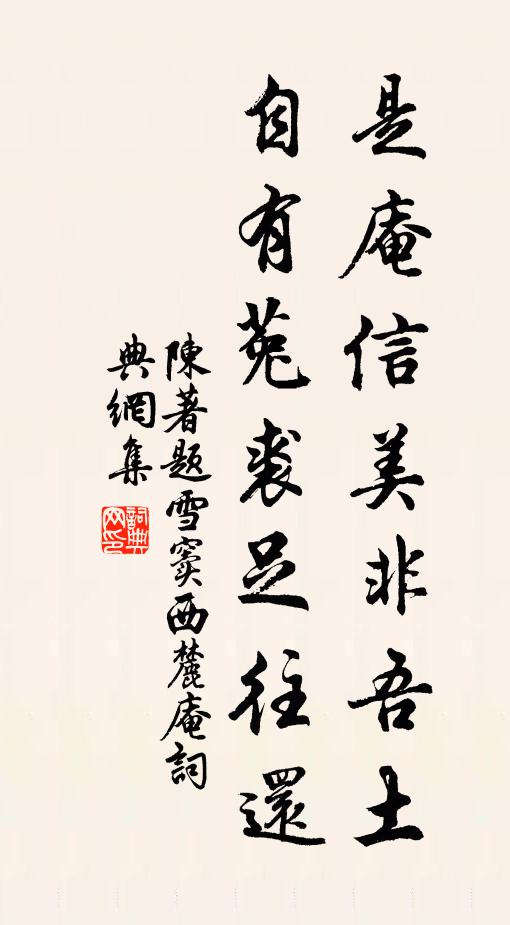 是庵信美非吾土
自有菟裘足往還
陳著題雪竇西麓庵詞
典網集
詞典網印